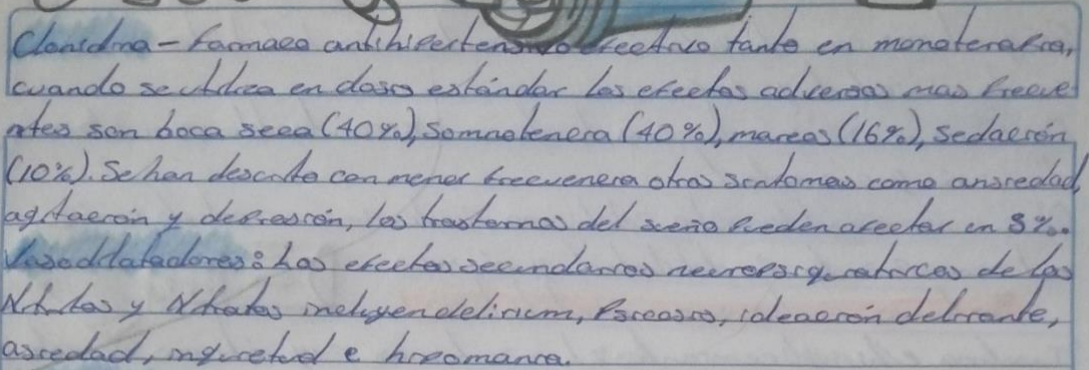 Clonidina - Farmaco antihipertensivo efectivo tanto en monoterapia,
cuando se utiliza en dosis estándar los efectos adversos mas frecue
ntes son boca seca (40%), somnolencia (40%), mareos (16%), sedación
(10%). Se han descrito con menor frecuencia otros sintomas como ansiedad,
agitación y depresión, los trastornos del sueño pueden afectar un 3%.
Vasodilatadores: Los efectos secundarios neuropsiquiatricos de los
Nitritos y Nitratos incluyen delirium, Psicosis, ideación delirante,
asiedad, inquietud e hipomania.